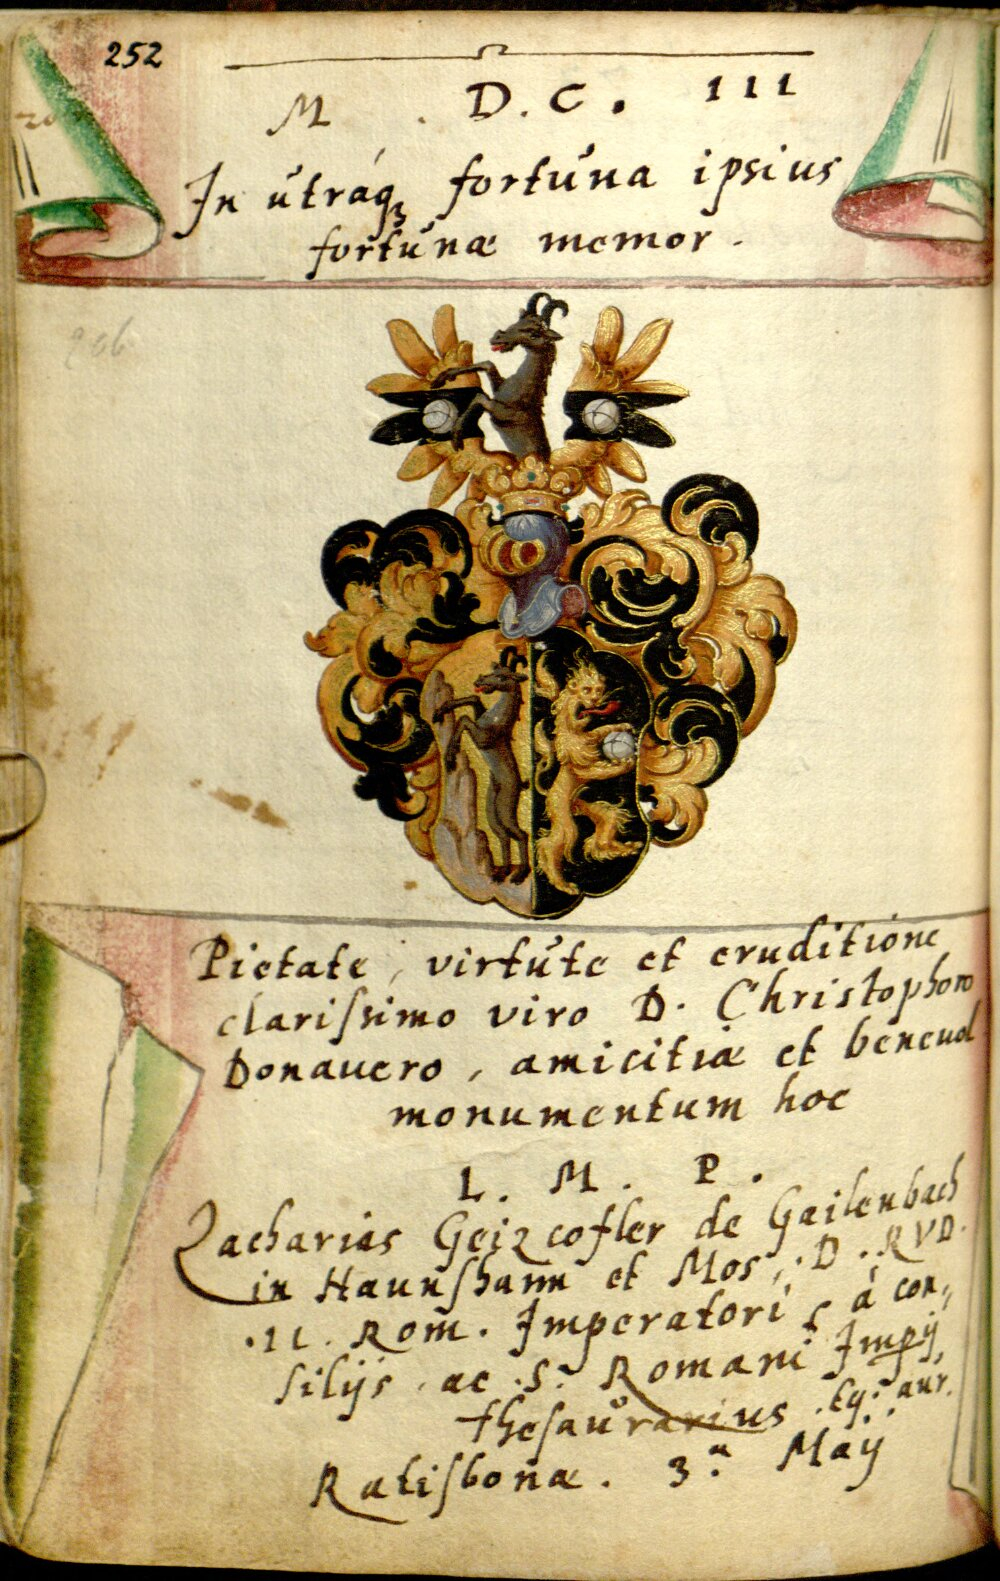 252
M . D. C. III
In utráqꝫ fortuna ipsius
fortunæ memor.
206
Pietate, virtute et eruditione
clarißimo viro D. Christophoro
Donauero, amicitiæ et beneuol
monumentum hoc
L. M. P.
Zacharias Geizcofler de Gailenbach
in Haunshaim et Mos, D. RVD.
II. Rom. Imperatori à con-
silijs ac S. Romani Impij
thesaurarius. Eq: aur.
Ratisbonæ. 3.ª Maÿ